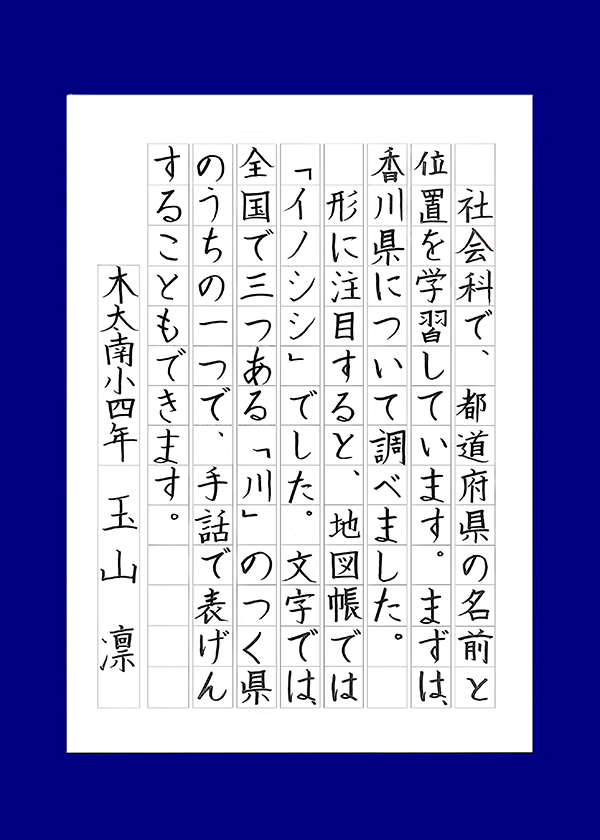 社会科で、都道府県の名前と
位置を学習しています。まずは、
香川県について調べました。
形に注目すると、地図帳では
「イノシシ」でした。文字では、
全国で三つある「川」のつく県
のうちの一つで、手話で表げん
することもできます。
木太南小四年 玉山凛